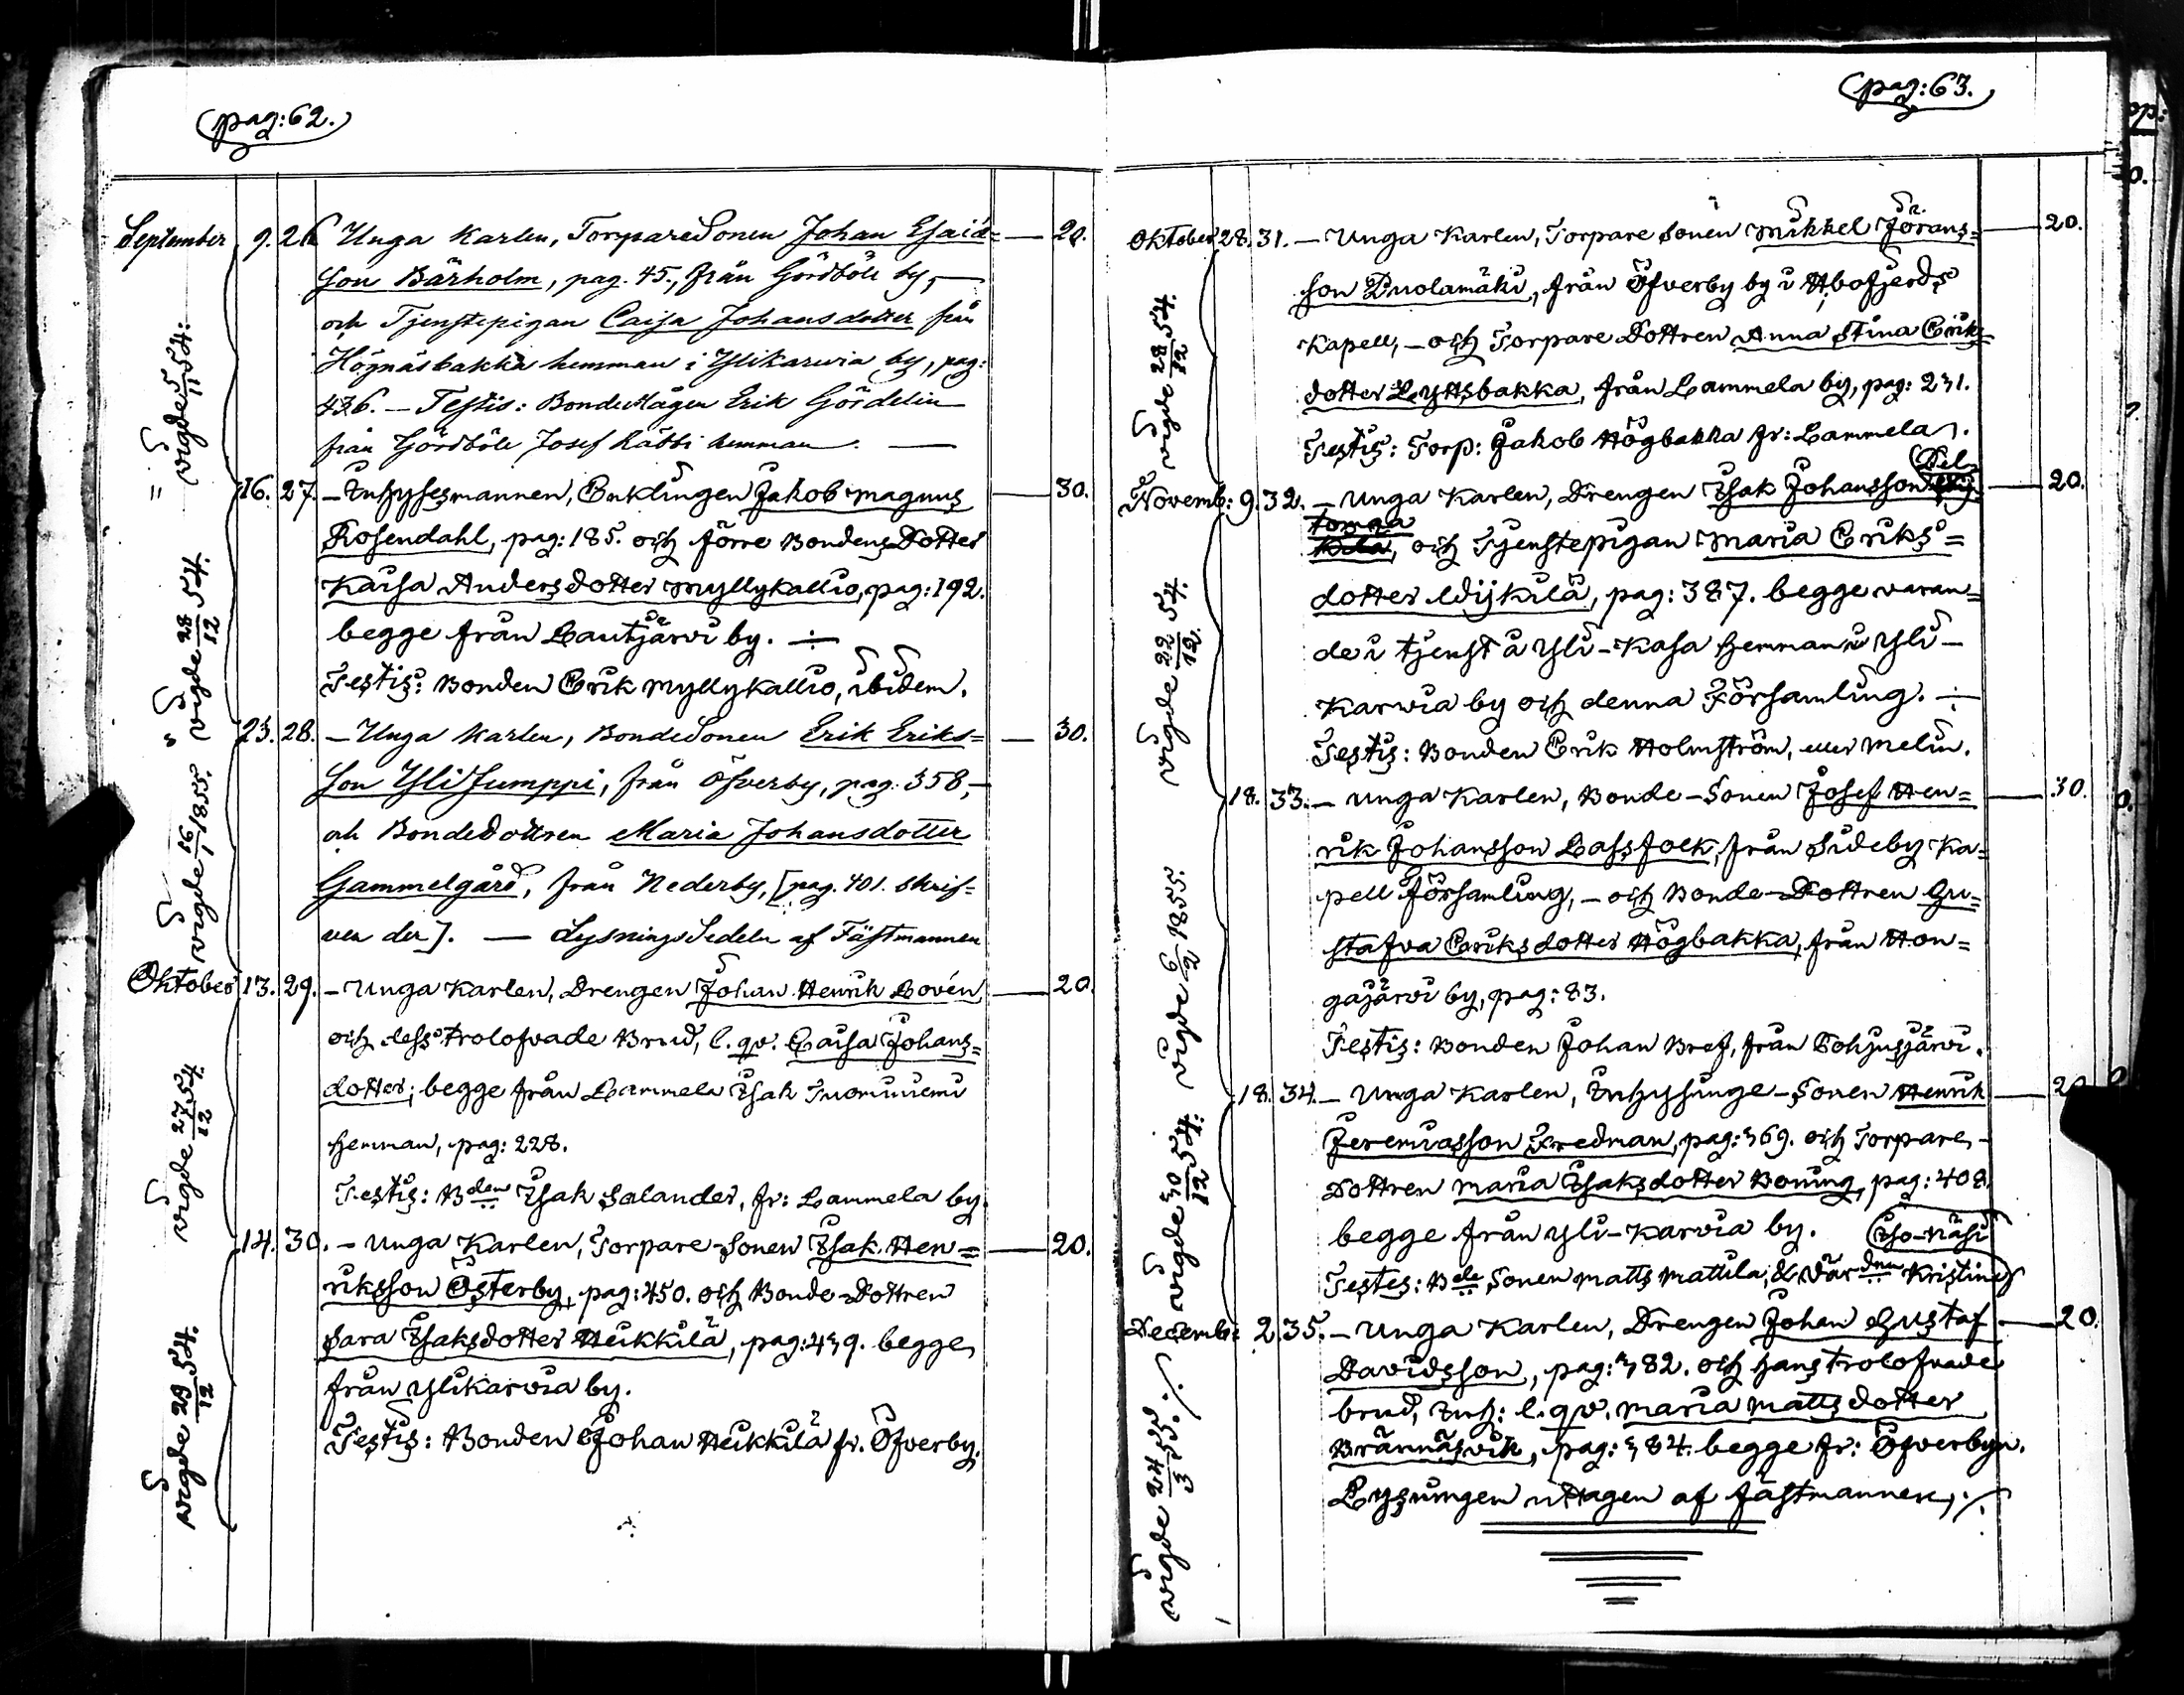 (pag: 62.)
September 9. 26. Unga Karlen, Torparesonen Johan Esaia= — 20.
son Bärholm, pag. 45., från Gördböle by, —
och Tjenstepigan Caisa Johansdotter från
Högnäsbakka hemman i Ylikarvia by, pag:
436. — Testis: Bondemågen Erik Gördelin
från Gördböle Josef Rabbi hemman. —
vigde 5/11 54.
16. 27. — Inhysesmannen, Enklingen Jakob Magnus — 30.
Rosendahl, pag: 185. och förre Bondens Dotter
Kaisa Andersdotter Myllykallio, pag: 192.
begge från Lautjärvi by. ÷
Testis: Bonden Erik Myllykallio, ibidem.
vigde 28/12 54
23. 28. — Unga Karlen, Bondesonen Erik Eriks= — 30.
son Ylisumppi, från Öfverby, pag. 358, —
och Bondedottren Maria Johansdotter
Gammelgård, från Nederby, [pag. 401. skrif=
ven der]. — Lysningssedeln af Fästmannen
vigde 1855.
Oktober 13. 29. — Unga Karlen, Drengen Johan Henrik Lovén — 20.
och dess trolofvade Brud, l. qv. Caisa Johans=
dotter; begge från Lammela Isak Tuominiemi
hemman, pag: 228.
Testis: Bden Isak Salander, fr: Lammela by.
vigde 27/12 54.
14. 30. — Unga Karlen, Torpare-Sonen Isak Hen= — 20.
riksson Österby, pag: 450. och Bonde-Dottren
Sara Isaksdotter Heikkilä, pag: 439. begge
från Ylikarvia by.
Testis: Bonden Johan Heikkilä fr. Öfverby.
vigde 54.
(pag: 63.)
Oktober 28. 31. — Unga Karlen, Torpare Sonen Mikkel Jörans= — 20.
son Duolamäki, från Öfverby by i Åbofjerds
Kapell, — och Torpare Dottren Anna Stina Eriks=
dotter Lyttsbakka, från Lammela by, pag: 231.
Testis: Torp: Jakob Högbakka fr: Lammela.
vigde 28/12 54.
Novemb: 9. 32. — Unga Karlen, Drengen Isak Johansson — 20.
och Tjenstepigan Maria Eriks=
dotter Wijkilä, pag: 387. begge varan=
de i tjenst å Yli-Kasa hemman i Yli-
Karvia by och denna Församling. ÷
Testis: Bonden Erik Holmström, eller Melin.
vigde 22/12 54.
18. 33. — Unga Karlen, Bonde-Sonen Josef Hen= — 30.
rik Johansson Lassfolk, från Sideby Ka=
pell Församling, — och Bonde-Dottren Gu=
stafva Eriksdotter Högbakka, från Hon=
gajärvi by, pag: 83.
Testis: Bonden Johan Bref, från Tohjusjärvi.
vigde 6/2 1855.
18. 34. — Unga Karlen, Inhysinge-Sonen Henrik — 20
Jeremiasson Fredman, pag: 369. och Torpare-
Dottren Maria Isaksdotter Boning, pag: 408.
begge från Yli-Karvia by. (Iso-Näsi
Testes: Bde Sonen Matts Mattila, & Värdnn Kristina)
vigde 30/12 54.
Decemb: 2. 35. — Unga Karlen, Drengen Johan Gustaf — 20.
Davidsson, pag: 382. och hans trolofvade
brud, Inh: l. qv. Maria Mattsdotter
Brännäsvik, pag: 384. begge fr: Öfverbyn.
Lysningen uttagen af fästmannen,
vigde 24/3 55.